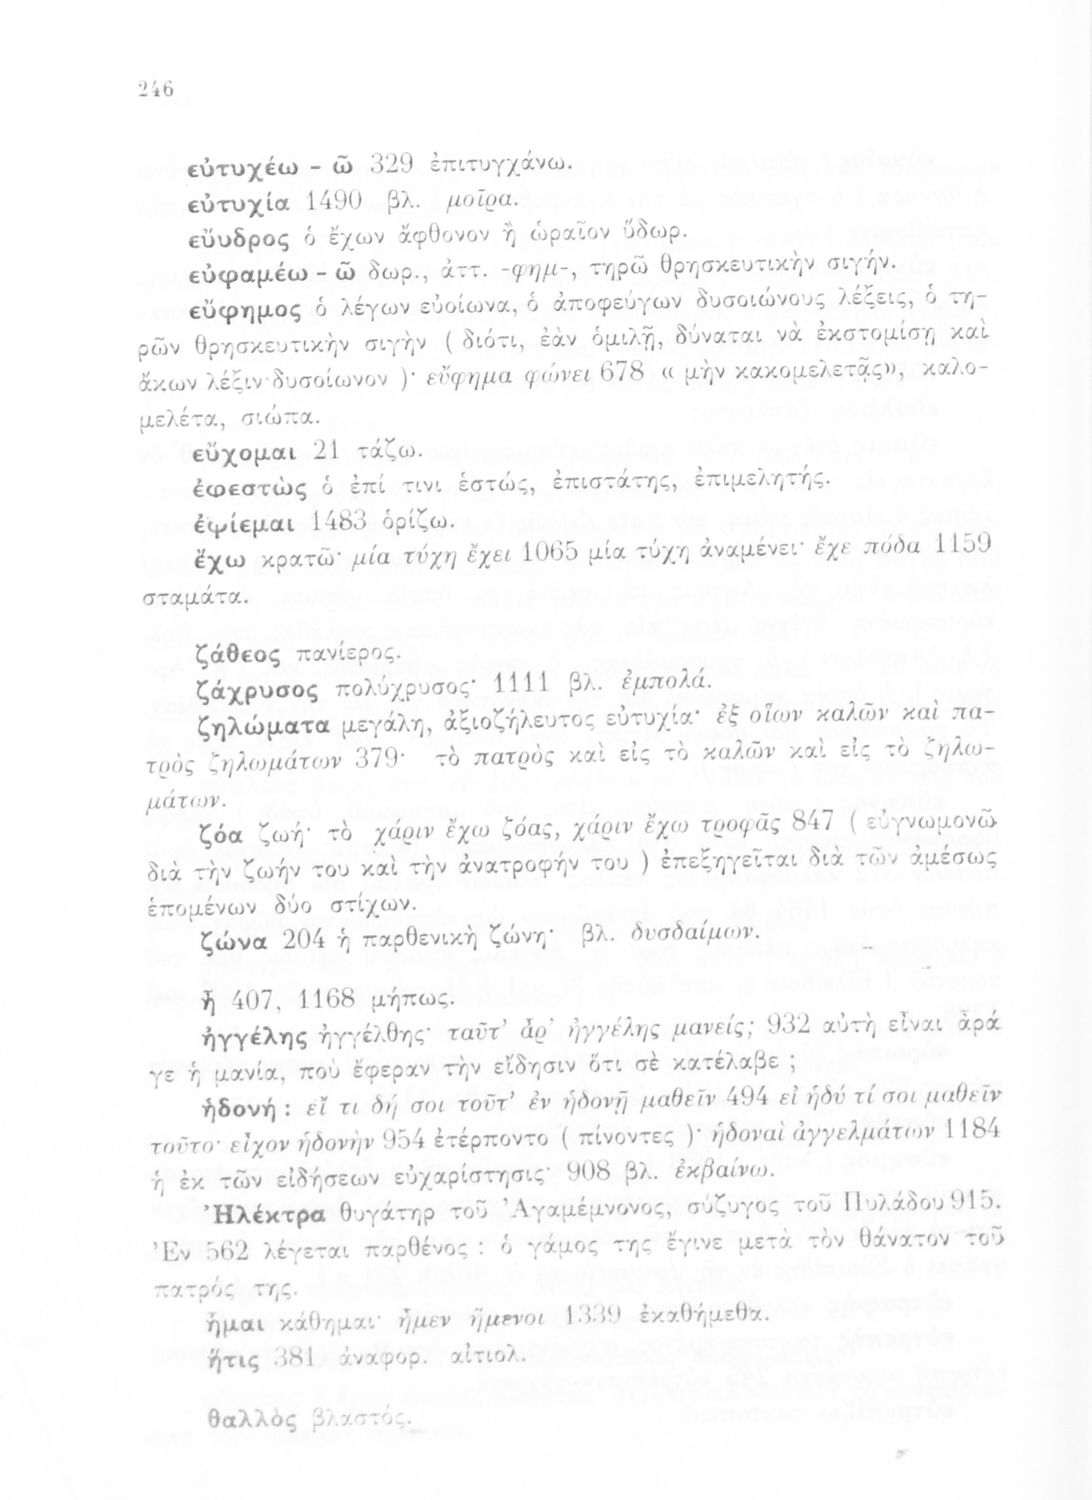 246
εὐτυχέω - ῶ 329 ἐπιτυγχάνω.
εὐτυχία 1490 βλ. μοῖρα.
εὔυδρος ὁ ἔχων ἄφθονον ἢ ὡραῖον ὕδωρ.
εὐφαμέω - ῶ δωρ., ἀττ. -φημ-, τηρῶ θρησκευτικὴν σιγήν.
εὔφημος ὁ λέγων εὐοίωνα, ὁ ἀποφεύγων δυσοιώνους λέξεις, ὁ τη-
ρῶν θρησκευτικὴν σιγὴν ( διότι, ἐὰν ὁμιλῇ, δύναται νὰ ἐκστομίσῃ καὶ
ἄκων λέξιν δυσοίωνον )· εὔφημα φώνει 678 « μὴν κακομελετᾷς», καλο-
μελέτα, σιώπα.
εὔχομαι 21 τάζω.
ἐφεστὼς ὁ ἐπί τινι ἑστώς, ἐπιστάτης, ἐπιμελητής.
ἐφίεμαι 1483 ὁρίζω.
ἔχω κρατῶ· μία τύχη ἔχει 1065 μία τύχη ἀναμένει· ἔχε πόδα 1159
σταμάτα.
ζάθεος πανίερος.
ζάχρυσος πολύχρυσος· 1111 βλ. ἐμπολά.
ζηλώματα μεγάλη, ἀξιοζήλευτος εὐτυχία· ἐξ οἵων καλῶν καὶ πα-
τρὸς ζηλωμάτων 379· τὸ πατρὸς καὶ εἰς τὸ καλῶν καὶ εἰς τὸ ζηλω-
μάτων.
ζόα ζωή· τὸ χάριν ἔχω ζόας, χάριν ἔχω τροφᾶς 847 ( εὐγνωμονῶ
διὰ τὴν ζωήν του καὶ τὴν ἀνατροφήν του ) ἐπεξηγεῖται διὰ τῶν ἀμέσως
ἑπομένων δύο στίχων.
ζώνα 204 ἡ παρθενικὴ ζώνη· βλ. δυσδαίμων.
ἦ 407, 1168 μήπως.
ἠγγέλης ἠγγέλθης· ταῦτ' ἆρ' ἠγγέλης μανείς; 932 αὐτὴ εἶναι ἆρά
γε ἡ μανία, ποὺ ἔφεραν τὴν εἴδησιν ὅτι σὲ κατέλαβε ;
ἡδονή : εἴ τι δή σοι τοῦτ' ἐν ἡδονῇ μαθεῖν 494 εἰ ἡδύ τί σοι μαθεῖν
τοῦτο· εἶχον ἡδονὴν 954 ἐτέρποντο ( πίνοντες )· ἡδοναὶ ἀγγελμάτων 1184
ἡ ἐκ τῶν εἰδήσεων εὐχαρίστησις· 908 βλ. ἐκβαίνω.
Ἠλέκτρα θυγάτηρ τοῦ Ἀγαμέμνονος, σύζυγος τοῦ Πυλάδου 915.
Ἐν 562 λέγεται παρθένος : ὁ γάμος της ἔγινε μετὰ τὸν θάνατον τοῦ
πατρός της.
ἧμαι κάθημαι· ἧμεν ἥμενοι 1339 ἐκαθήμεθα.
ἥτις 381 ἀναφορ. αἰτιολ.
θαλλὸς βλαστός.